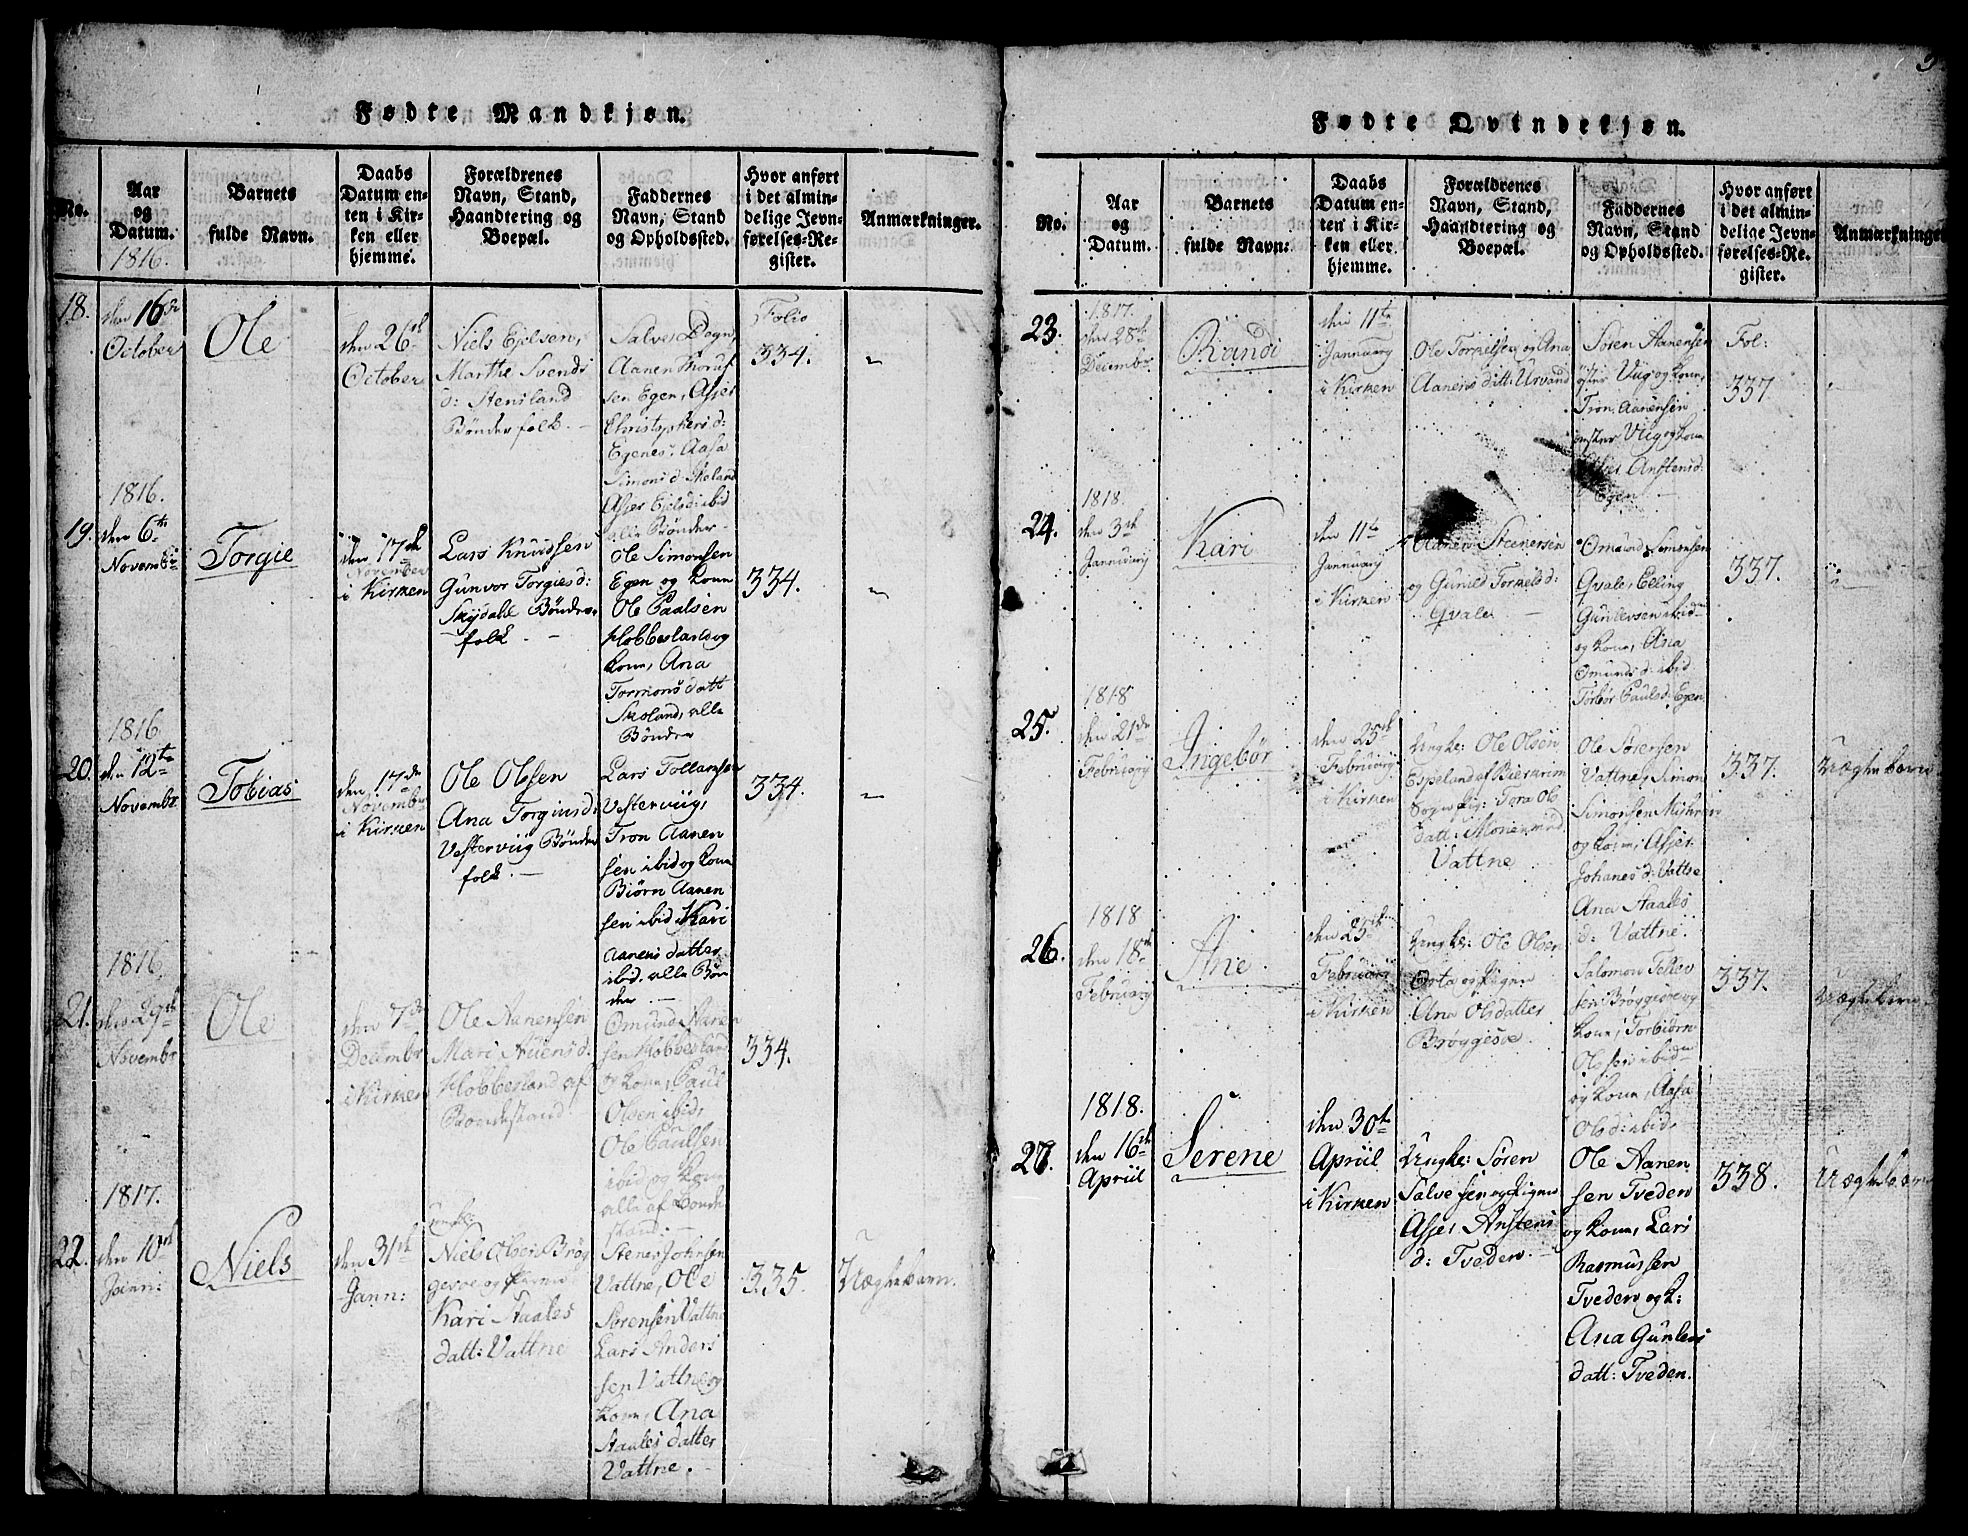 Fødte Mandkjøn.
No.
Aar
og
Datum.
1816.
Barnets
fulde Navn.
Daabs
Datum en-
ten i Kir-
ken eller
hjemme.
Forældrenes
Navn, Stand,
Haandtering og
Boepæl.
Faddernes
Navn, Stand
og Opholdssted.
Hvor anført
i det almin-
delige Jevn-
førelses-Re-
gister.
Anmærkninger.
18.
den 16de
October
Ole
den 26de
October
Niels Ejelsen,
Marthe Svends
d: Stensland
Bønderfolk.
Salve Degn,
Aanen
sen Egen, Asser
Christophers d:
Egenes, Aasa
Simons d
Asser Ejels d: ibid
alle Bønder
Folio
334.
1816.
19.
den 6te
Novembr
Torgie
den 17de
November
i Kirken
Lars Knudsen
Gunvor Torgies d:
Skjdahl Bønder-
folk.
Ole Simonsen
Egen og kone
Ole Paalsen
Hobbesland og
kone, Ana
Tormons datt
Skoland, alle
Bønder
334.
1816
20.
den 12te
Novembr.
Tobias
den 17de
Novembr
i Kirken
Ole Olssen
Ana Torgius d:
Vesterviig Bønder
folk.
Lars Tollamsen
Vesterviig,
Tron Aanen
sen ibid og kone
Biørn Aanen
sen ibid Kari
Aanens datter
ibid. alle Bøn
der
334.
1816.
21.
den 29de
Novembr
Ole
den 7de
Decembr
i Kirken
Ole Aanensen
Mari
Hobbesland af
Bondestand
Omund Aanen
sen Hobbesland
og kone, Paul
Olsen ibid,
Ole Paulsen
ibid og kone
alle af Bonde
stand.
334.
1817.
22.
den 10de
Jann:
Niels
den 31te
Jann:
Niels Olsen Brøg
gesve og
Kari Staales
datt: Vattne
Stener Johnsen
Vattne, Ole
Sørensen Vattne
Lars Anders
sen Vattne og
kone, Ana
Staales datter
Vattne.
335.
Uægtebarn.
Fødte Qvindekjøn.
No.
Aar
og
Datum.
Barnets
fulde Navn.
Daabs
Datum en-
ten i Kir-
ken eller
hjemme.
Forældrenes
Navn, Stand,
Haandtering og
Boepæl.
Faddernes
Navn, Stand
og Opholdssted.
Hvor anført
i det almin-
delige Jevn-
førelses-Re-
gister.
Anmærkninger
1817.
23.
den 28de
Decembr
Randi
den 11te
Januarj
i Kirken
Ole Torkelsen og Ana
Aanens datt: Urvand
Søren Aanensen
øster Viig og kone,
Tron Aanensen
vester Viig og kone
Anstens d.
Egen
Fol:
337
1818.
24.
den 3de
Januarj
Kari
den 11te
Januarj
i Kirken
Aanen Steenersen
og Gunild Torkels d:
Qvale
Omund Simonsen
Qvale, Elling
Gunlevsen ibid
og kone, Ana
Omunds d: ibid
Torbor Pauls d: Egen
337.
1818
25.
den 21de
Februarj
Ingebør
den 25de
Februarj
i Kirken
Ungk: Ole Olsen
Espeland af Bierarim
Sogn Pig: Tora Ols
datt:
Vattne
Ole Sørensen
Vattne, Simon
Simonsen
og kone, Asser
Johanes d: Vattne
Ana Staales
d: Vattne.
337.
Uægtebarn.
1818
26.
den 18de
Februarj
Ane
den 25de
Februarj
i Kirken
Ungk: Ole Olsen
Orta og Pigen
Ana Olsdatter
Brøggesve
Salomon Tellev
sen Brøggesve og
kone, Torbiørn
Olssen ibidm
og kone, Aasa
Ols d: ibid.
337.
Uægtebarn.
1818.
27.
den 16de
Apriil
Serene
den 30te
Apriil
i Kirken
Ungk: Søren
Salvesen og Pigen
Asser Anstens
d: Tveden.
Ole Aanen
sen Tveden
og kone, Lars
Rasmussen
Tveden og k:
Ana Gunlevs
datt: Tveden.
338.
Uægtebarn